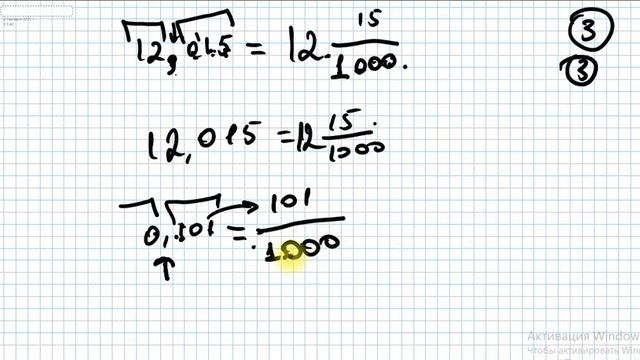 12,015 = 12 15/1000
3
3
12,015 = 12 15/1000
0,101 = 101/1000
Активация Window
Чтобы активировать Win